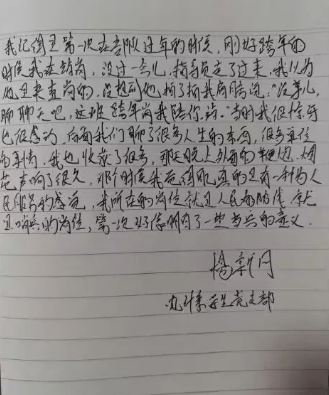 我记得是第一次在部队过年的时候，刚好跨年的
时候我在站岗，没过一会儿，指导员走了过来，我以为
他是来查岗的，没想到他，拍了拍我肩膀说，“没事儿，
聊聊天吧，这班跨年岗我陪你站。”当时我很惊讶
也很感动，后面我们聊了很多人生的东西，很多专注
的事情，我也收获了很多，那天晚上外面的鞭炮、烟
花声响了很久，那个时候我莫名的，真的是有一种为人
民服务的感觉，我所在的岗位就是人民的
哨兵的岗位，第一次好像明有了一些当兵的意义
党支部